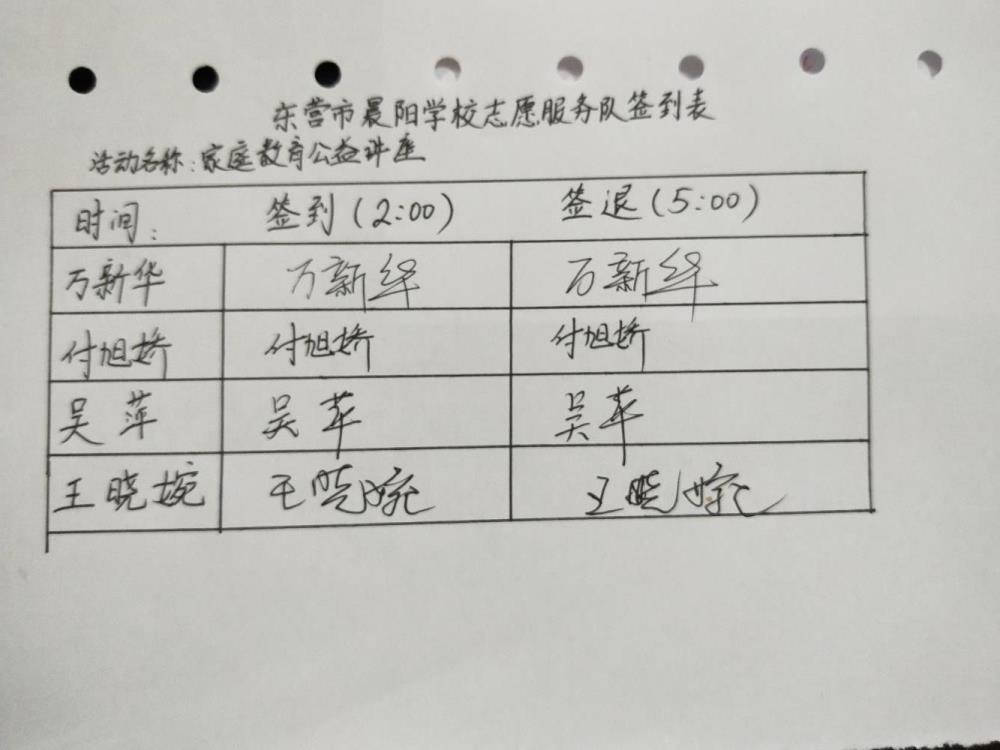 东营市晨阳学校志愿服务队签到表
活动名称:家庭教育公益讲座
时间: 签到(2:00) 签退(5:00)
万新华 万新华 万新华
付旭娇 付旭娇 付旭娇
吴萍 吴苹 吴苹
王晓婉 王晓婉 王晓婉